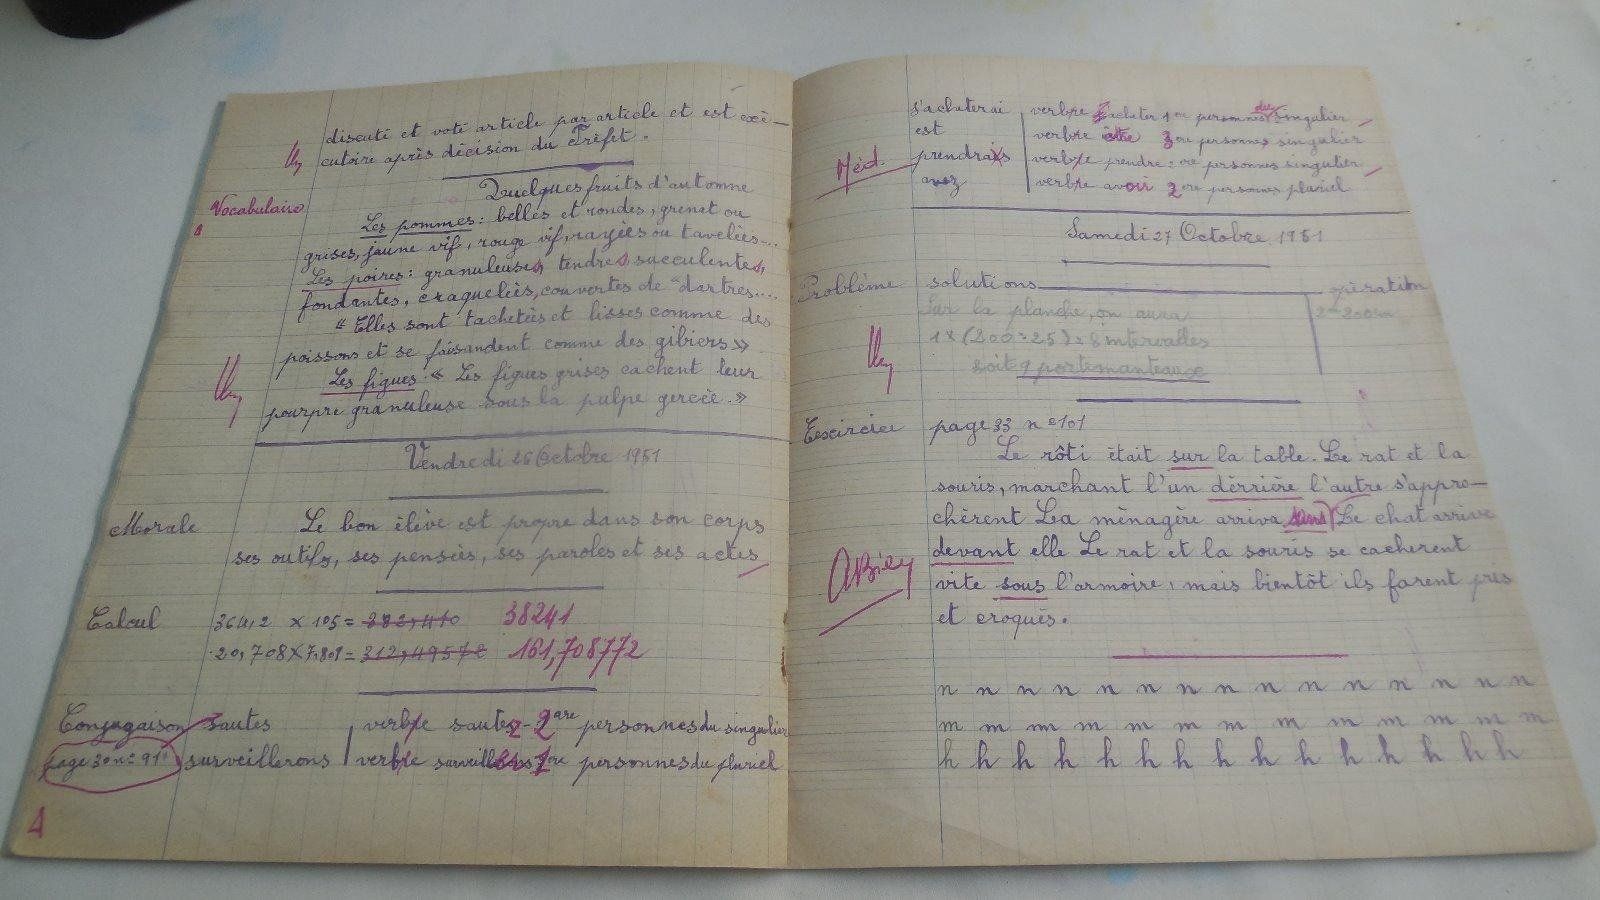 discuté et voté article par article et est exé-
cutoire après décision du Préfet.
Vocabulaire
Quelques fruits d'automne
Les pommes : belles et rondes, grenat ou
grises, jaune vif, rouge vif, rayées ou tavelées...
Les poires : granuleuses, tendres, succulentes,
fondantes, craquelées, couvertes de "dartres....
"Elles sont tachetées et lisses comme des
poissons et se faisandent comme des gibiers»
Les figues : « Les figues grises cachent leur
pourpre granuleuse sous la pulpe gercée.»
Vendredi 26 Octobre 1951
Morale Le bon élève est propre dans son corps
ses outils, ses pensées, ses paroles et ses actes
Calcul 364,2 x 105 = 382,410 38241
20,708 x 7,809 = 161,708772
Conjugaison sautes verbe sauter 2 are personnes du singulier
page 30 n= 91 surveillerons verbe 1 ere personnes du pluriel
s'achèterai verbre acheter 1 ere personnes du singulier
est verbre être 3 ere personnes singulier
Méd. prendrais verbre prendre : ere personnes singulier
avez verbre avoir 2 ere personnes pluriel
Samedi 27 Octobre 1951
Problème solutions opération
Sur la planche, on aura 2m=200cm
1 x (200:25) = 8 intervalles
soit 9 portemanteaux
Exercice page 33 n=101
Le rôti était sur la table. Le rat et la
souris, marchant l'un dérrière l'autre s'appro-
chèrent La ménagère arriva sans Le chat arrive
devant elle Le rat et la souris se cacherent
vite sous l'armoire, mais bientôt ils farent pres
et croqués.
A Bien
n n n n n n n n n n n n n n n
m m m m m m m m m m m m m
h h h h h h h h h h h h h h h